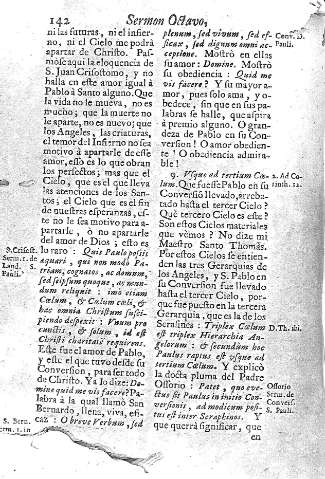 142 Sermon Octavo,
ni las futuras, ni el infier-
no, ni el Cielo me podrà
apartar de Christo. Pas-
mòse aqui la eloquencia de
S. Juan Crisostomo, y no
halla en este amor igual à
Pablo à Santo alguno. Que
la vida no le mueva, no es
mucho; que la muerte no
le aparte, no es nuevo; que
los Angeles, las criaturas,
el temor del Infierno no sea
motivo à apartarle de esse
amor, esso es lo que obran
los perfectos; mas que el
Cielo, que es el que lleva
las atenciones de los San-
tos; el Cielo, que es el fin
de nuestras esperanças, es-
te no le sea motivo para a-
partarle, ò no apartarle
del amor de Dios; esto es
lo raro: Quis Paulo possit
æquari, qui non modò Pa-
triam, cognatos, ac domum,
sed seipsum quoque, ac mun-
dum reliquit: imò etiam
Cælum, & Cælum cæli, &
hac omnia Christum susci-
piendo despexit: Unum pro
cunctis, & solum, id est
Christi charitatẽ requirens.
Este fue el amor de Pablo,
y este el que tuvo desde su
Conversion, para ser todo
de Christo. Ya lo dize: Do-
mine quid me vis facere? Pa-
labra à la qual llamò San
Bernardo, llena, viva, efi-
caz: O breve Verbum, sed
S. Crisost.
Serm. 1. de
Land. S.
Pauli.
S. Bern.
Serm. 1. in
plenum, sed vivum, sed ef-
ficax, sed dignum omni ac-
ceptione. Mostrò en ellas
su amor: Domine. Mostrò
su obediencia: Quid me
vis facere? Y su mayor a-
mor, pues solo ama, y o-
bedece, sin que en sus pa-
labras se halle, que aspira
à premio alguno. O gran-
deza de Pablo en su Con-
version! O amor obedien-
te! O obediencia admira-
ble!
9. Vsque ad tertium Cœ-
lum. Que fuesse Pablo en su
Conversiõ llevado, arreba-
tado hasta el tercer Cielo?
Què tercero Cielo es este?
Son estos Cielos materiales
que vèmos? No dize mi
Maestro Santo Thomàs.
Por estos Cielos se entien-
den las tres Gerarquias de
los Angeles, y S. Pablo en
su Conversion fue llevado
hasta el tercer Cielo, por-
que puesto en la tercera
Gerarquia, que es la de los
Serafines: Triplex Cælum
est triplex Hierarchia An-
gelorum: & secundum hoc
Paulus raptus est vsque ad
tertium Cælum. Y explicò
la docta pluma del Padre
Ossorio: Patet, quo eve-
ctus sit Paulus in initio Con-
versionis, ad modicum posi-
tus est inter Seraphinos. Y
que querrà significar, que
en
Conv. D.
Pauli.
2. Ad Co-
rinth. 12.
D. Th. ibi.
Ossorio
Serm. de
Convers.
S. Pauli.